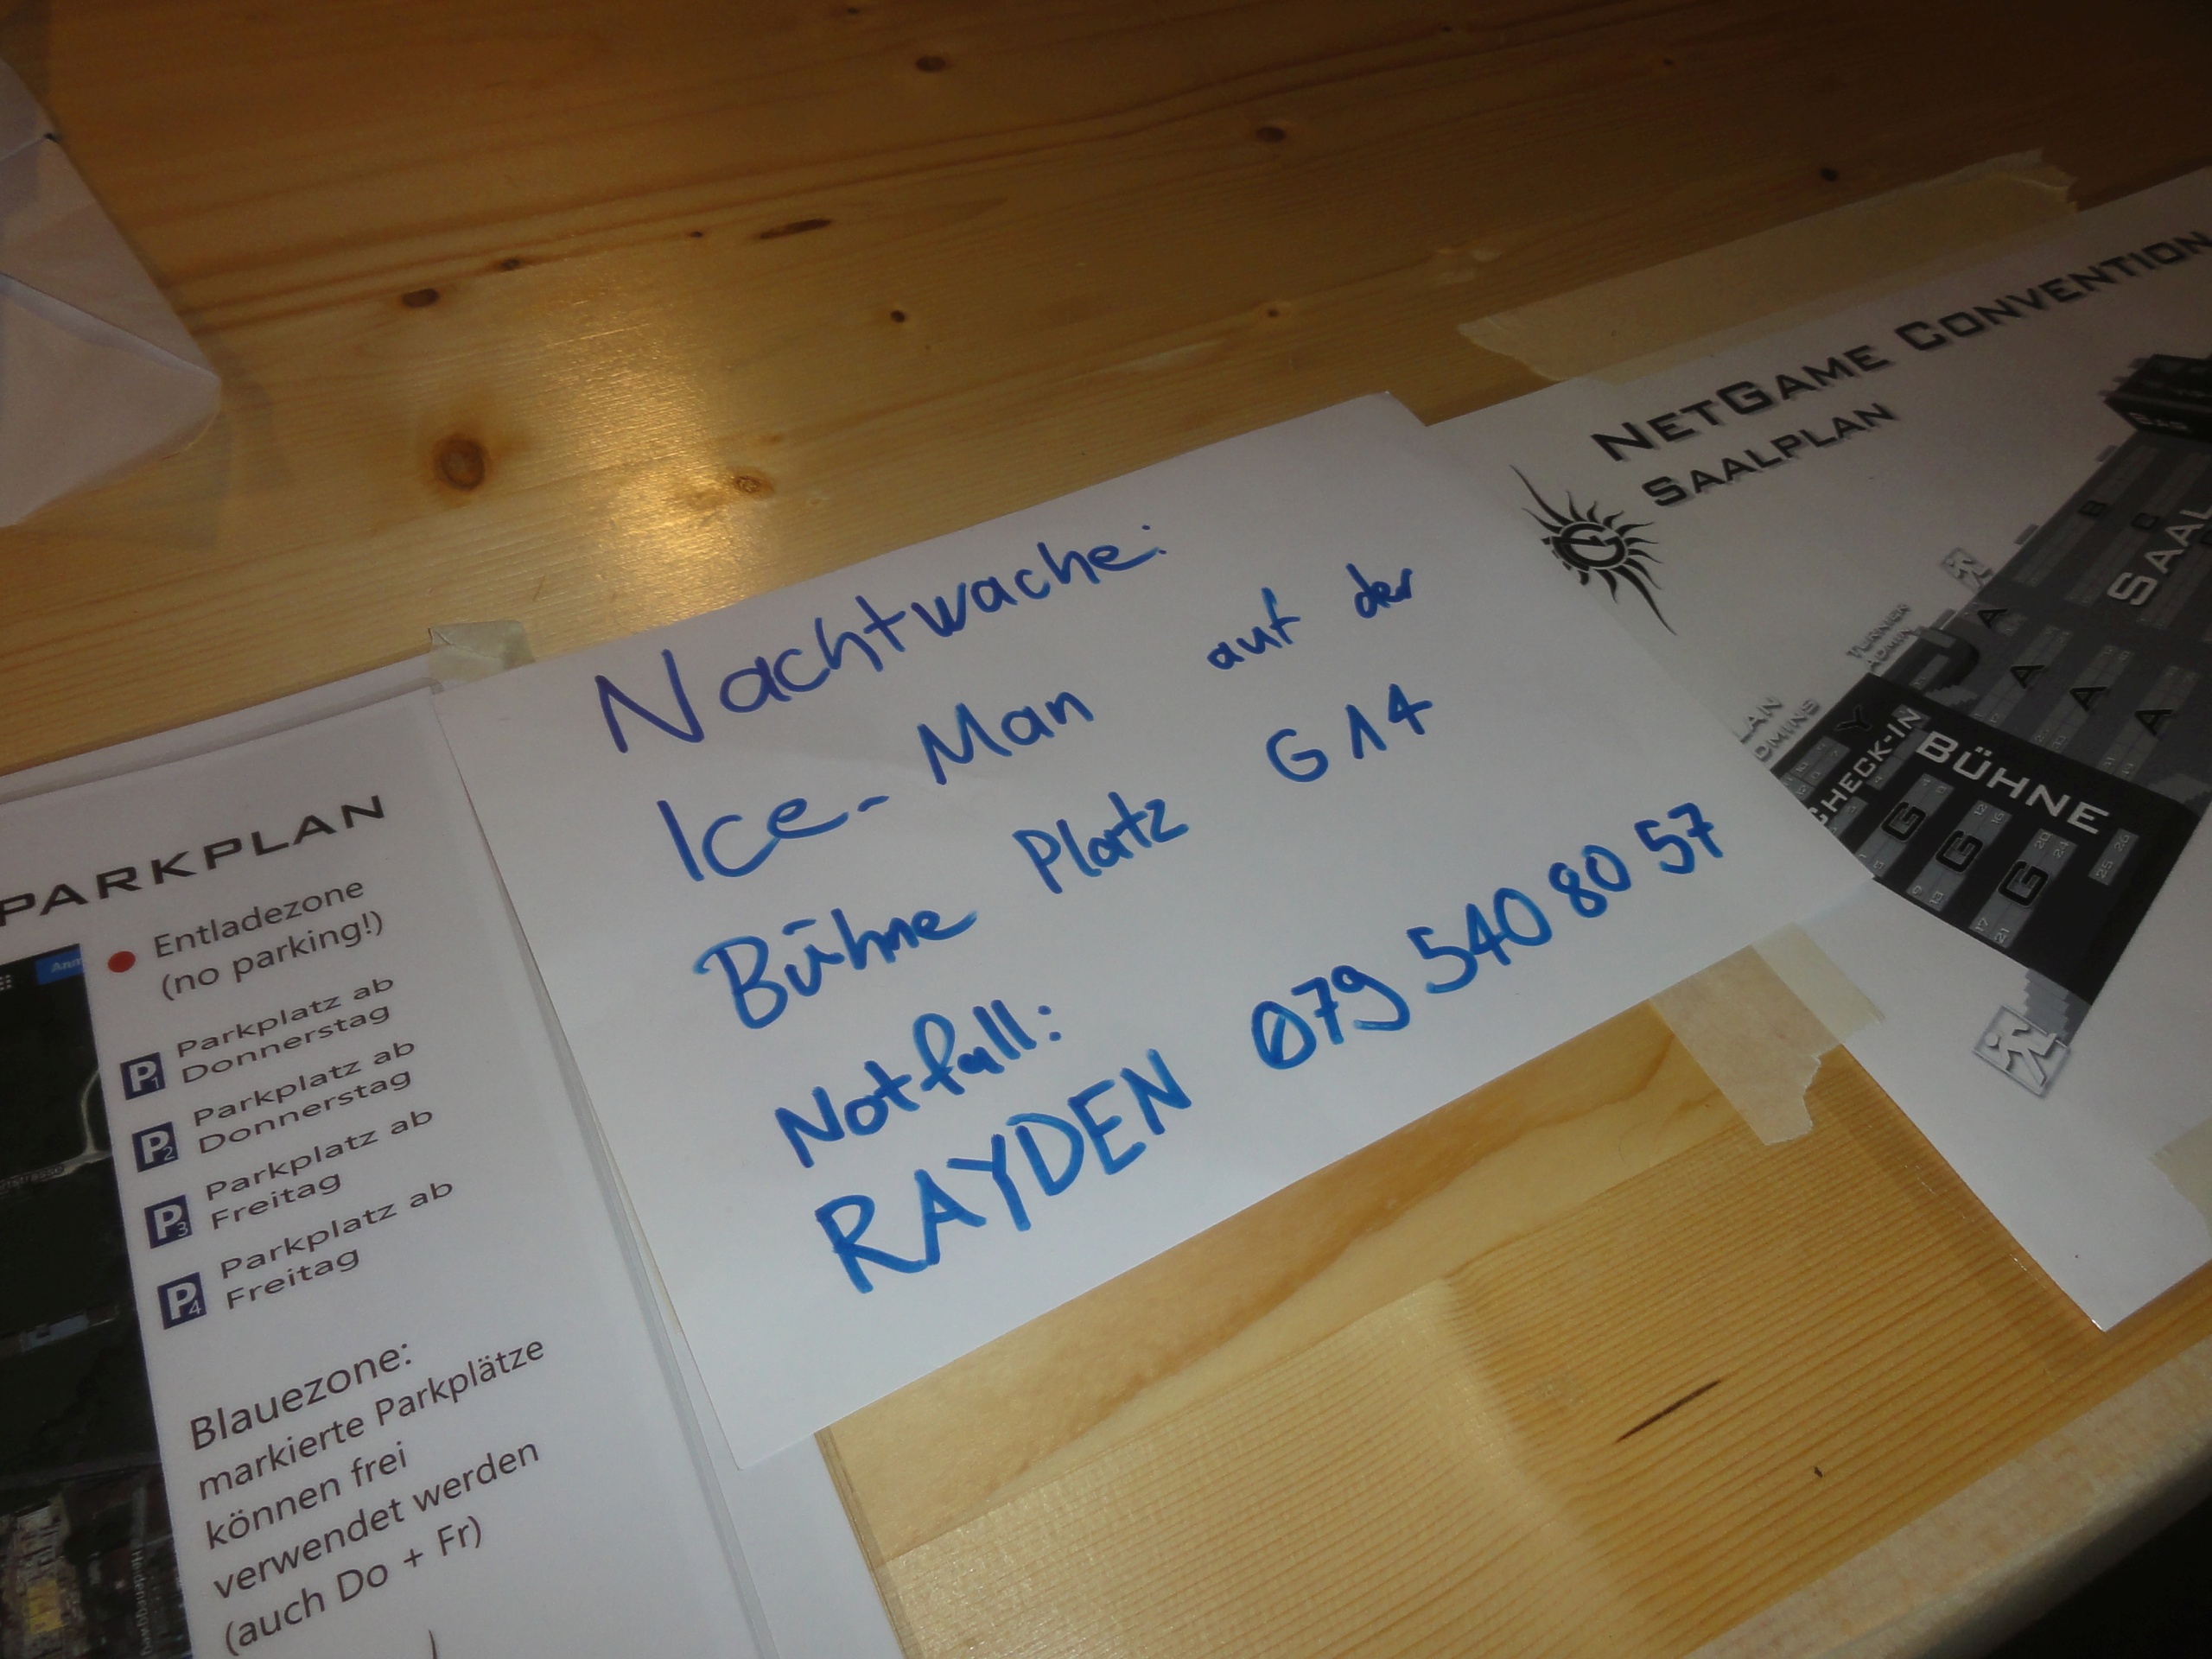 Nachtwache:
Ice-Man auf der
Bühne Platz G14
Notfall:
RAYDEN 079 540 80 57
PARKPLAN
Entladezone
(no parking!)
P1 Parkplatz ab
Donnerstag
P2 Parkplatz ab
Donnerstag
P3 Parkplatz ab
Freitag
P4 Parkplatz ab
Freitag
Blauezone:
markierte Parkplätze
können frei
verwendet werden
(auch Do + Fr)
NETGAME CONVENTION
SAALPLAN
SAAL
B C
A
A A A
TURNIER
ADMINS
LAN
Y
CHECK-IN
BÜHNE
G G G